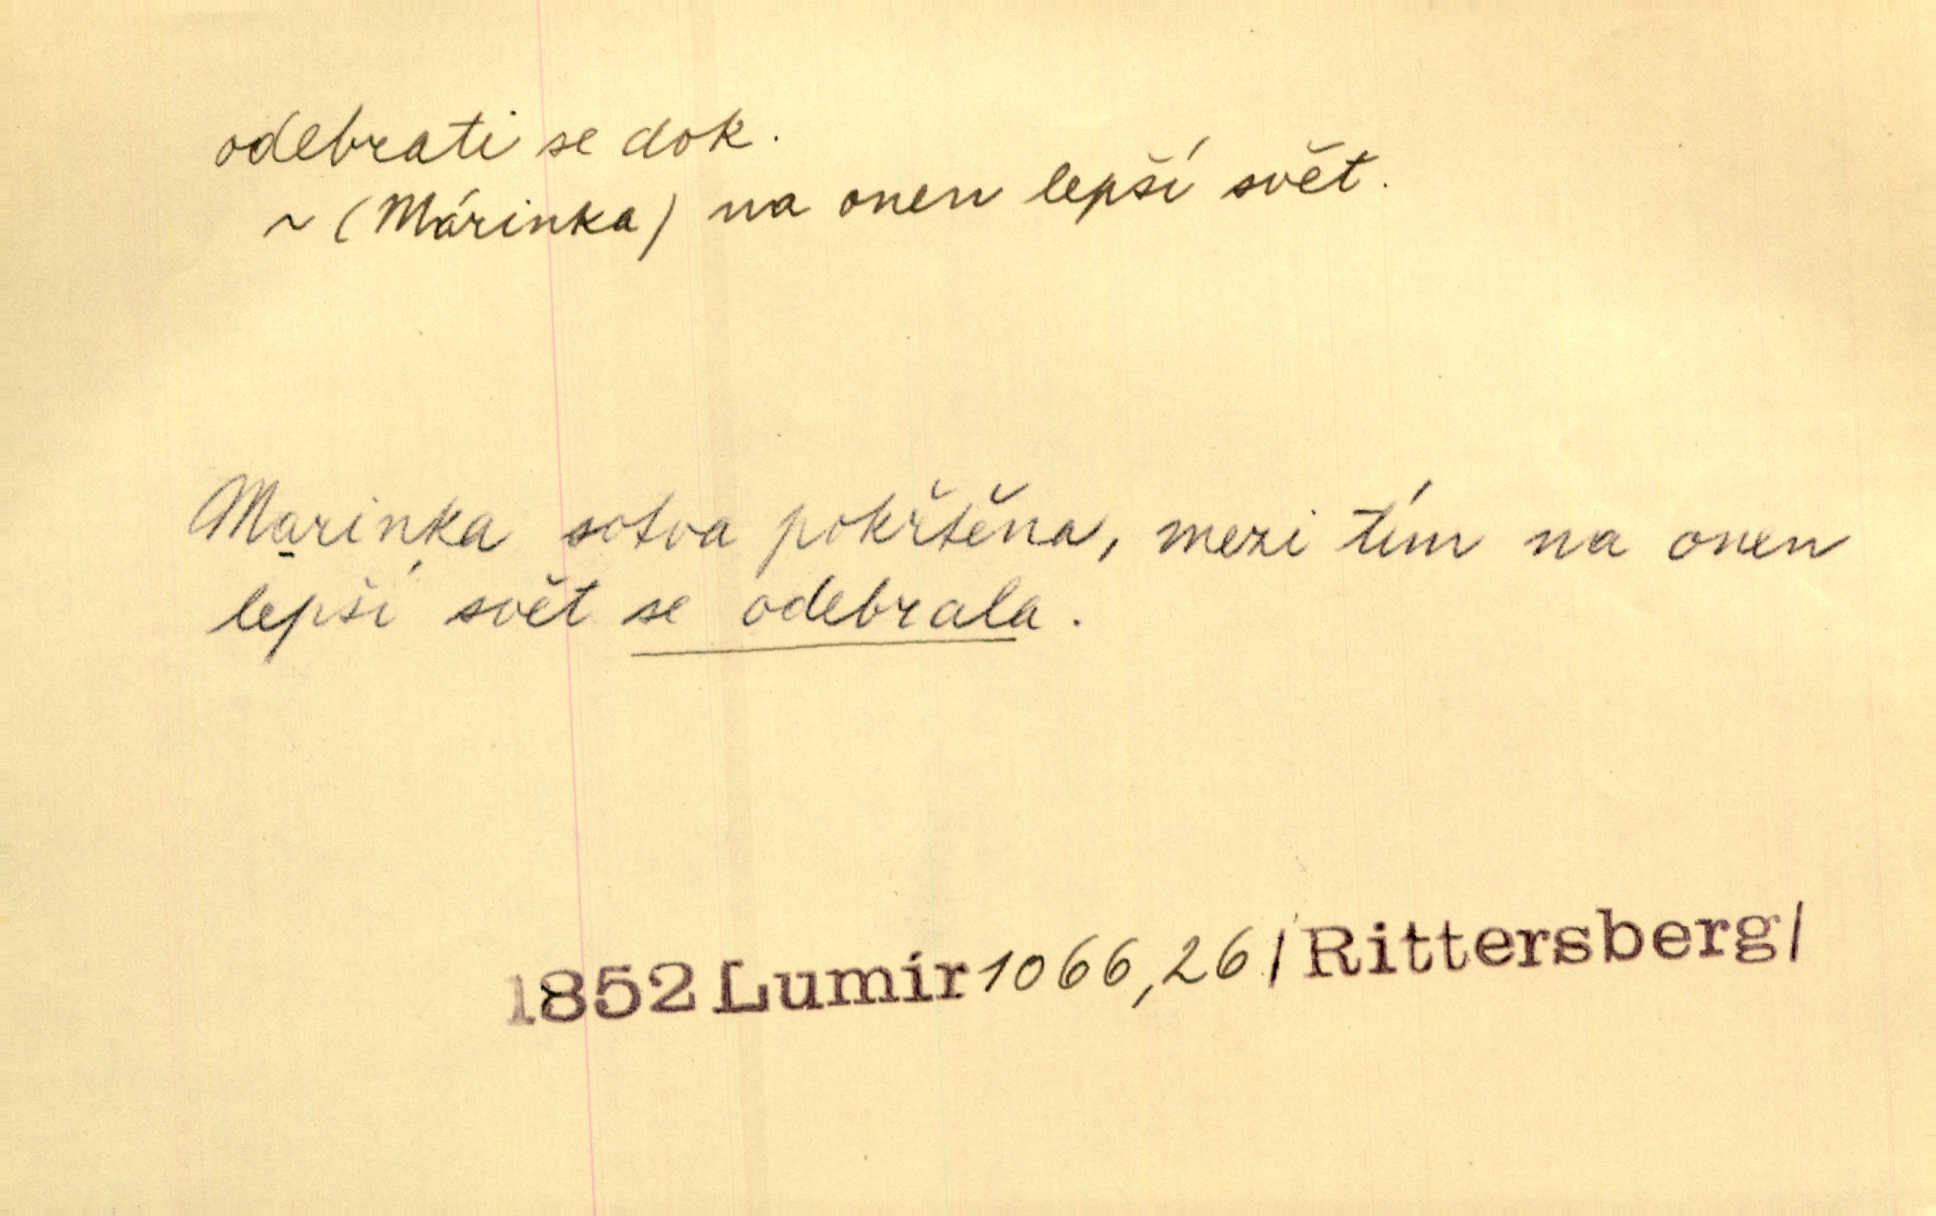 odebrati se dok.
~ (Márinka) na onen lepší svět.
Marinka sotva pokřtěna, mezi tím na onen
lepší svět se odebrala.
1852 Lumír 1066,26 / Rittersberg/